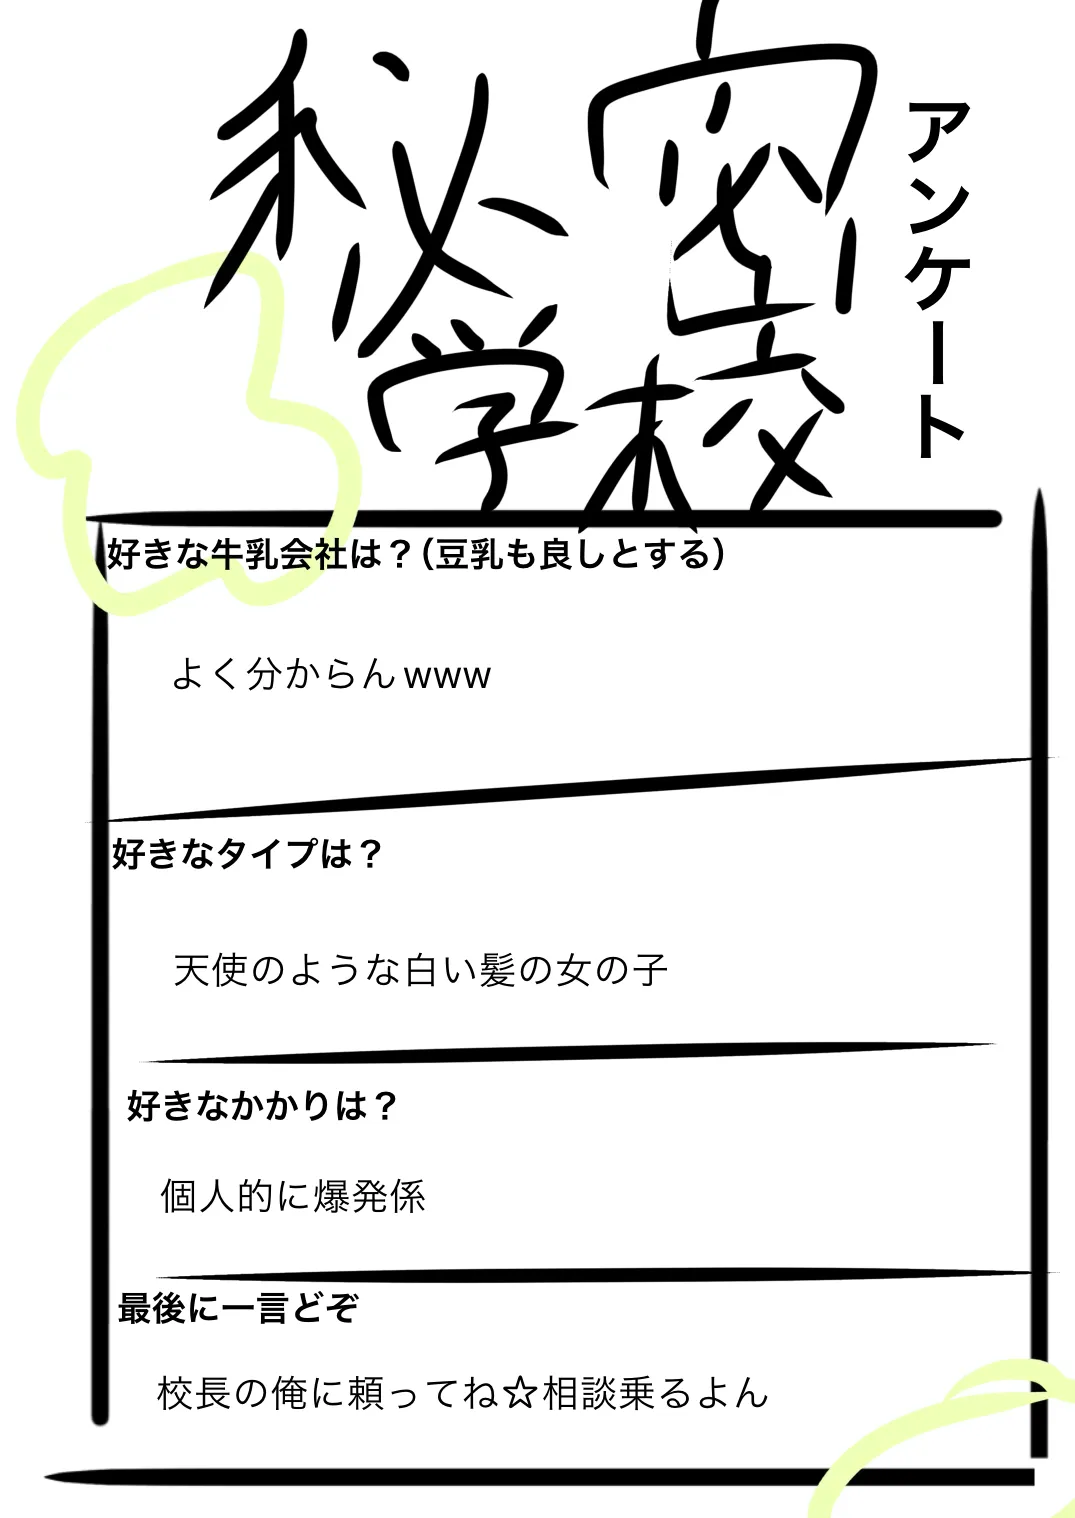 秘密
学校
アンケート
好きな牛乳会社は？（豆乳も良しとする）
よく分からんwww
好きなタイプは？
天使のような白い髪の女の子
好きなかかりは？
個人的に爆発係
最後に一言どぞ
校長の俺に頼ってね☆相談乗るよん